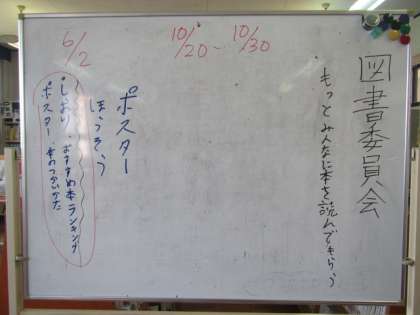 図書委員会
もっとみんなに本を読んでもらう
10/20~10/30
ポスター
ほうそう
6/2
・しおり・おすすめ本ランキング
ポスター・本のつかいかた